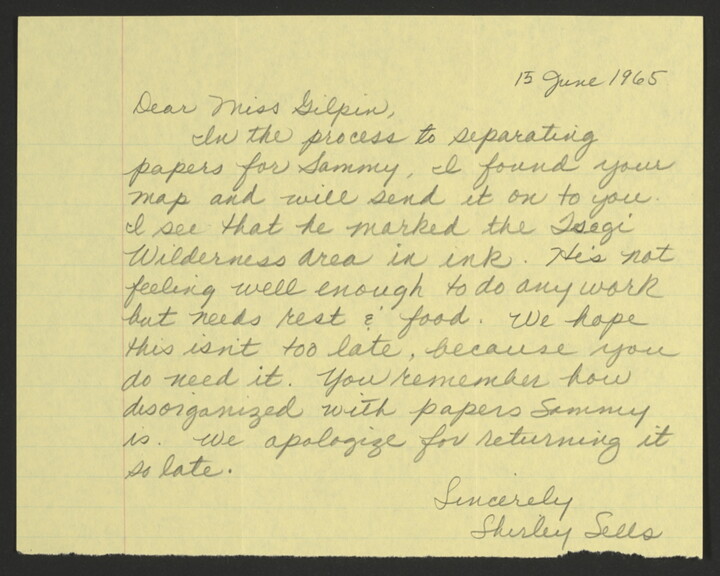 15 June 1965
Dear Miss Gilpin,
In the process to separating
papers for Sammy, I found your
map and will send it on to you.
I see that he marked the Tsegi
Wilderness area in ink. He's not
feeling well enough to do any work
but needs rest & food. We hope
this isn't too late, because you
do need it. You remember how
disorganized with papers Sammy
is. We apologize for returning it
so late.
Sincerely
Shirley Sells